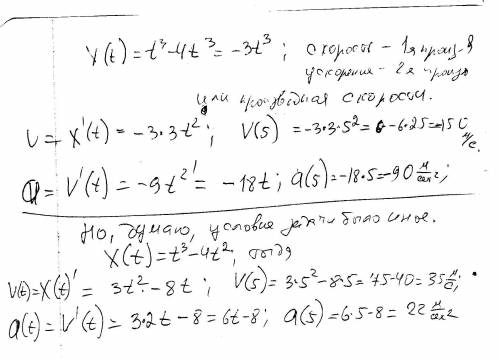 X(t) = t³ - 4t³ = -3t³ ; скорость - 1я произ-я
ускорение - 2я произв
или производная скорости.
U = X'(t) = -3·3t² ; V(5) = -3·3·5² = -6·25 = -150 м/с.
a = V'(t) = -9t²' = -18t ; a(5) = -18·5 = -90 м/сек² ;
Но, думаю, условие задачи было иное.
X(t) = t³ - 4t², тогда
V(t) = X(t)' = 3t² - 8t ; V(5) = 3·5² - 8·5 = 75 - 40 = 35 м/с ;
a(t) = V'(t) = 3·2t - 8 = 6t - 8 ; a(5) = 6·5 - 8 = 22 м/сек²